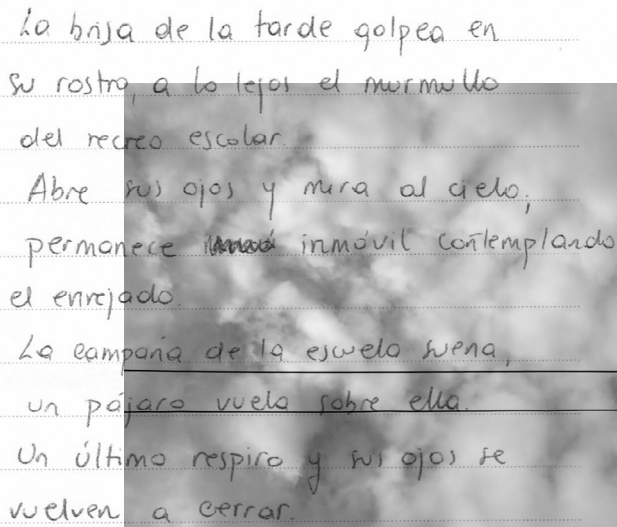 La brisa de la tarde golpea en
su rostro, a lo lejos el murmullo
del recreo escolar.
Abre sus ojos y mira al cielo;
permanece inmóvil contemplando
el enrejado.
La campana de la escuela suena,
un pájaro vuela sobre ella.
Un último respiro y sus ojos se
vuelven a cerrar.